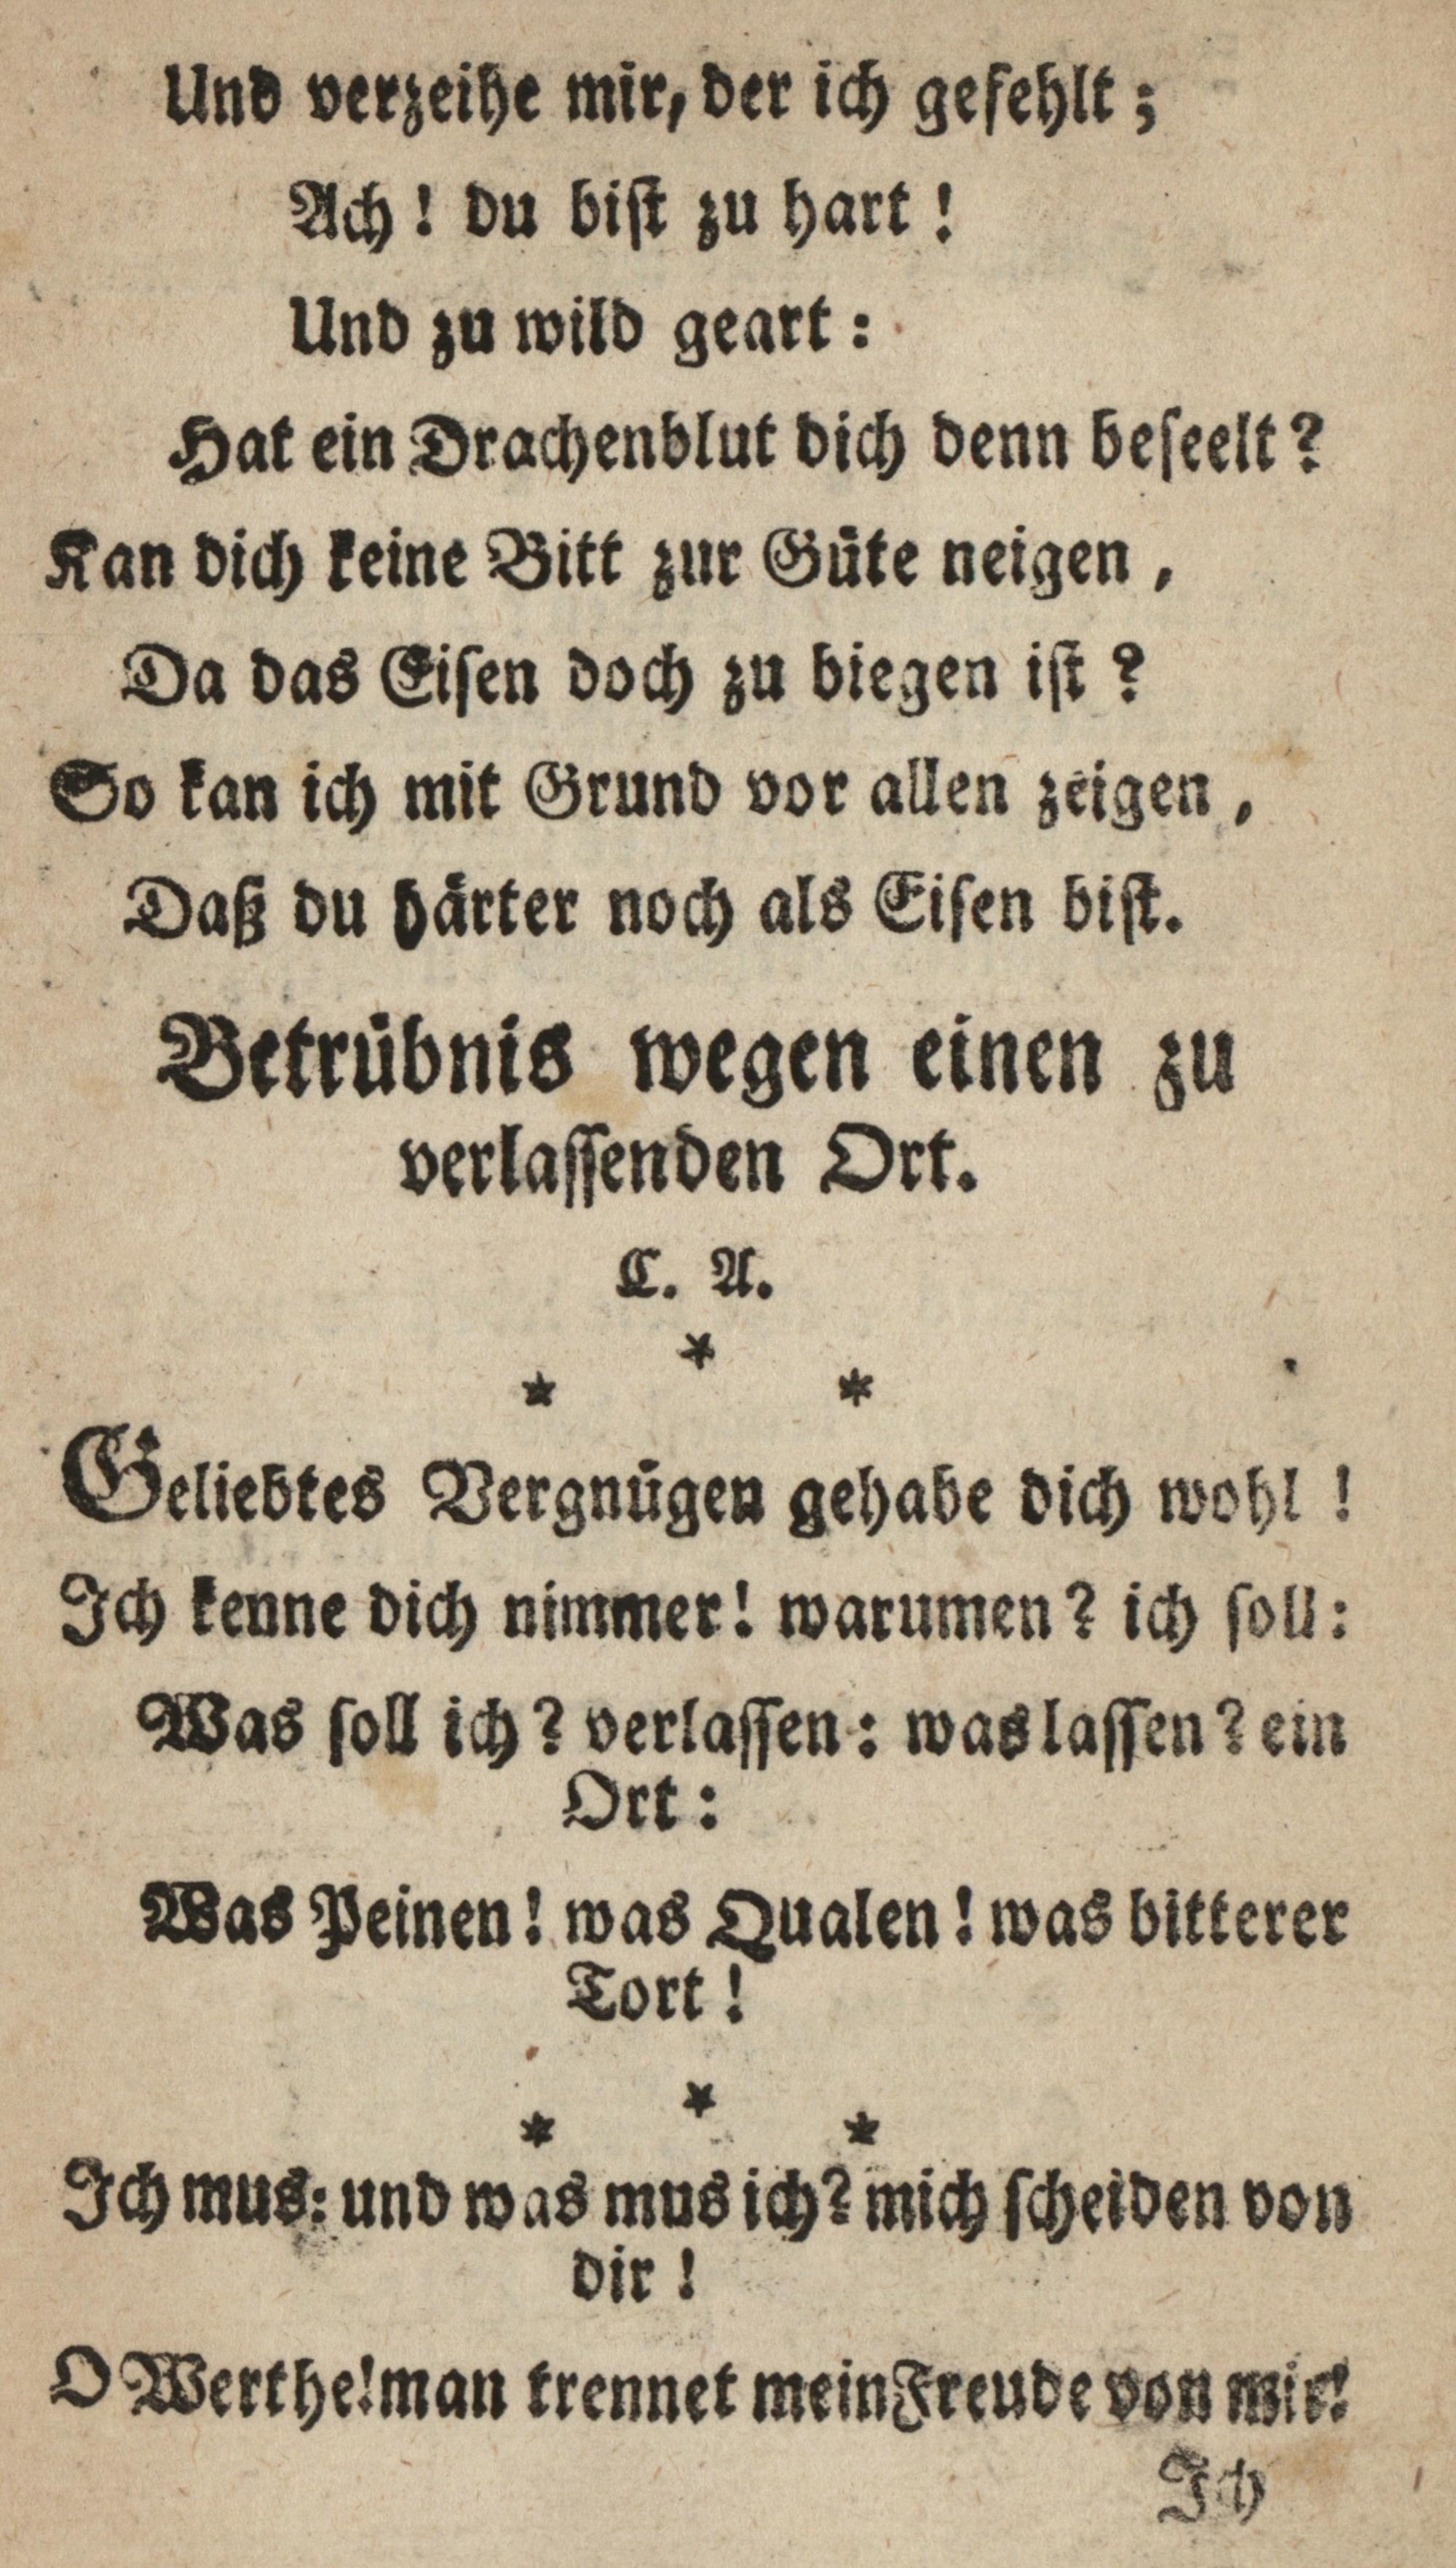 Und verzeihe mir, der ich gefehlt;
Ach! du biſt zu hart!
Und zu wild geart:
Hat ein Drachenblut dich denn beſeelt?
Kan dich keine Bitt zur Güte neigen,
Da das Eiſen doch zu biegen iſt?
So kan ich mit Grund vor allen zeigen,
Daß du härter noch als Eiſen biſt.
Betrübnis wegen einen zu
verlaſſenden Ort.
C. A.
*
* *
Geliebtes Vergnügen gehabe dich wohl!
Ich kenne dich nimmer! warumen? ich ſoll:
Was ſoll ich? verlaſſen: was laſſen? ein
Ort:
Was Peinen! was Qualen! was bitterer
Tort!
*
* *
Ich mus: und was mus ich? mich ſcheiden von
dir!
O Werthe! man trennet mein Freude von mir!
Ich